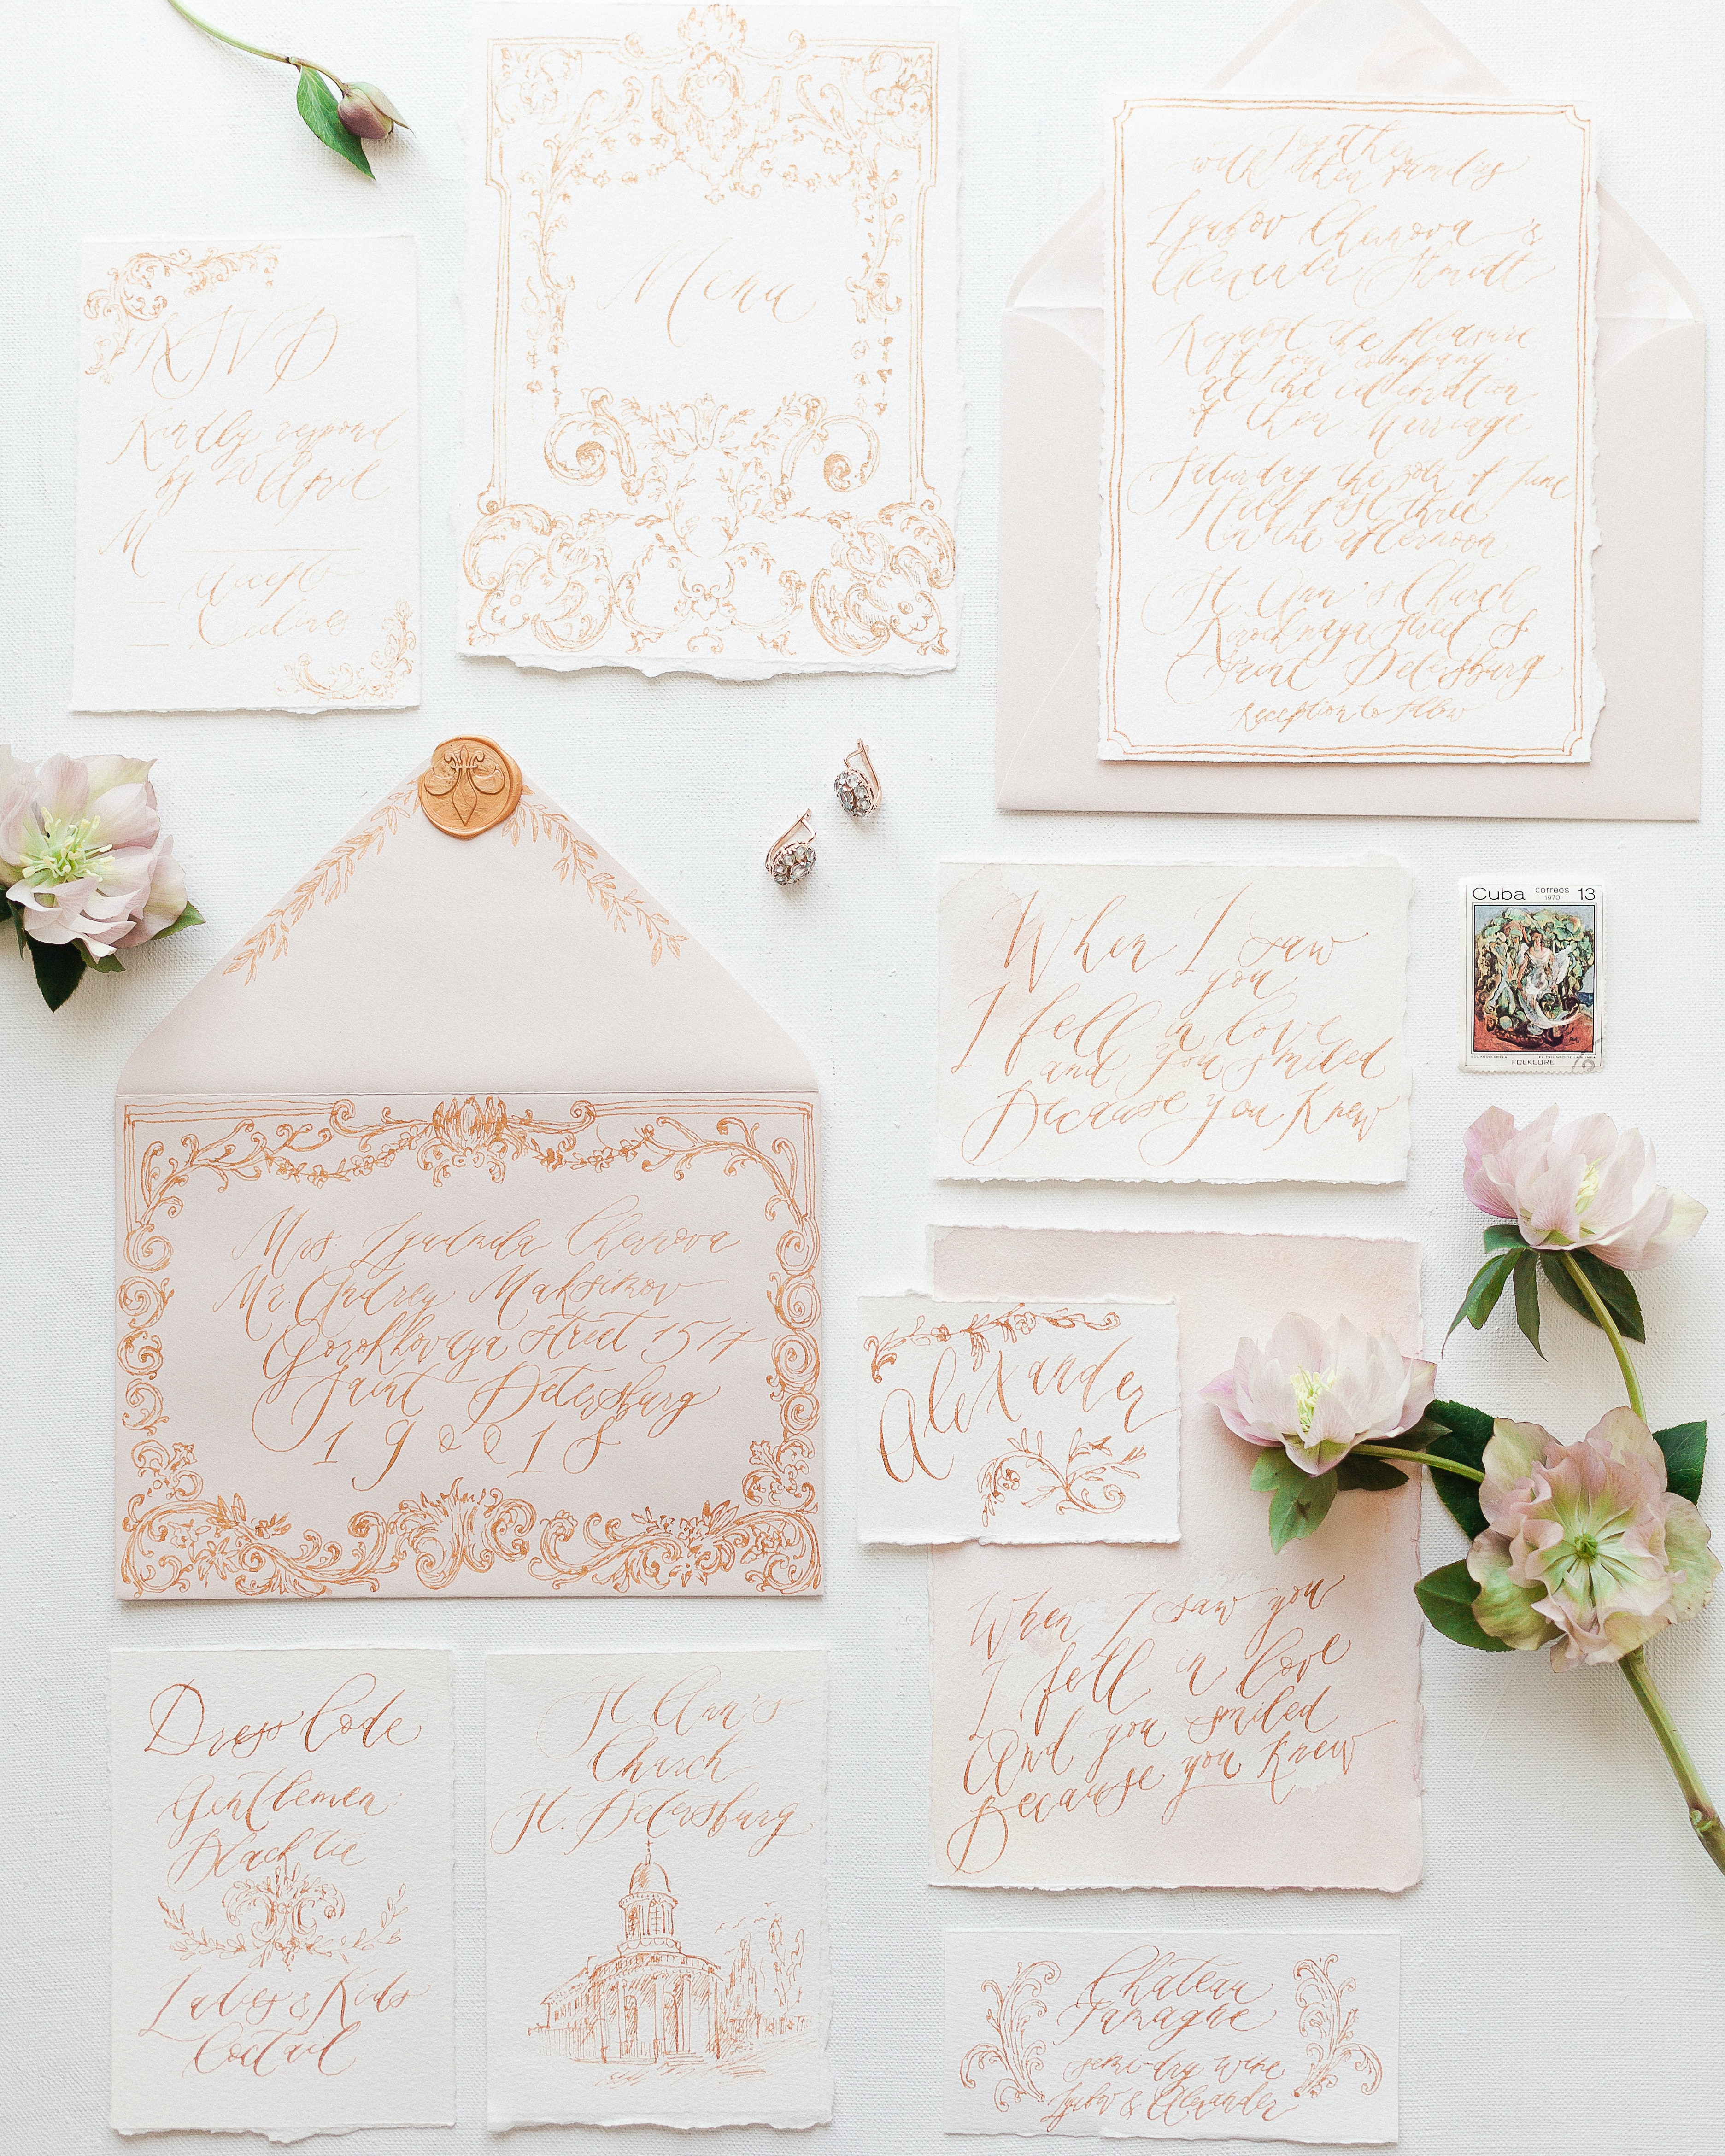 RSVP
Kindly respond
by 20 April
M
Accepts
Declines
Menu
Together
with their families
Lyubov Chernova &
Alexander Shmidt
Request the pleasure
of your company
at the celebration
of their Marriage
Saturday the 30th of June
Half past three
in the afternoon
St Ann's Church
Kirochnaya Street 8
Saint Petersburg
Reception to follow
When I saw
you
I fell in love
and you smiled
Because you Knew
Cuba correos 13
1970
FOLKLORE
Mrs. Lyudmila Chernova
Mr. Andrey Maksimov
Gorokhovaya street 15/7
Saint Petersburg
190018
Alexander
When I saw you
I fell in love
And you smiled
Because you Knew
Dress Code
Gentlemen:
Black tie
Ladies & Kids
Coctail
St Ann's
Church
St. Petersburg
Chateau
Tamagne
semi-dry wine
Lyubov & Alexander